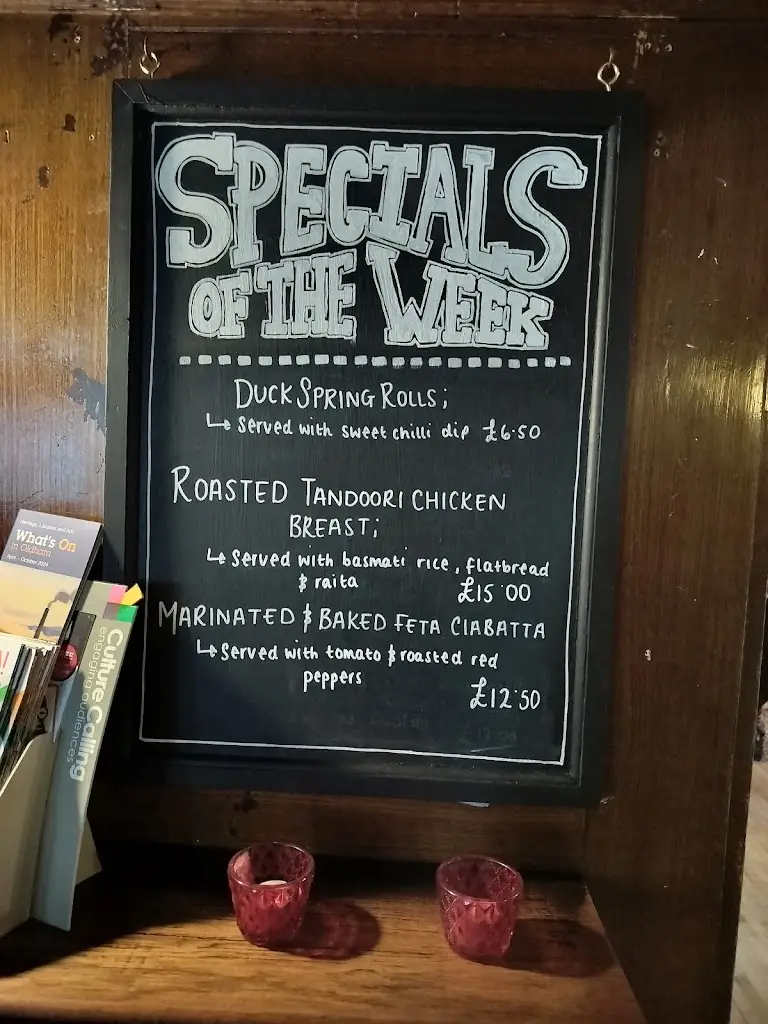 SPECIALS
OF THE WEEK
DUCK SPRING ROLLS;
↳ Served with sweet chilli dip £6.50
ROASTED TANDOORI CHICKEN
BREAST;
↳ Served with basmati rice, flatbread
& raita £15.00
MARINATED & BAKED FETA CIABATTA
↳ Served with tomato & roasted red
peppers
£12.50
What's On
in Oldham
Culture Calling
engaging audiences